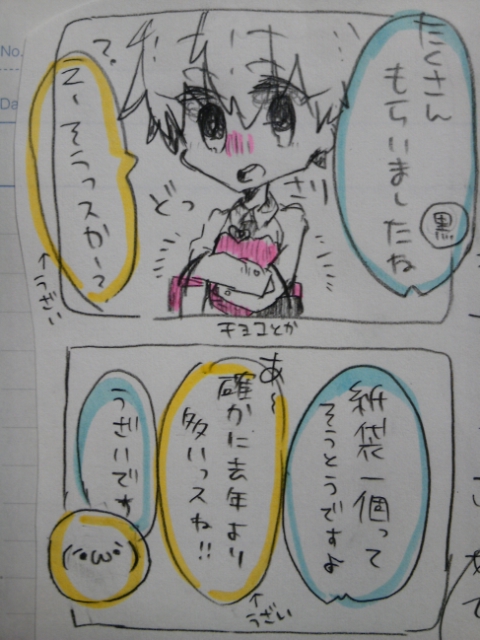 No.
Da
たくさん
もらいましたね
黒
え〜そうっスかー?
↑うざい
どっ
さり
チョコとか
紙袋一個って
そうとうですよ
あ〜
確かに去年より
多いっスね!!
↑うざい
うざいです
(´・ω・`)